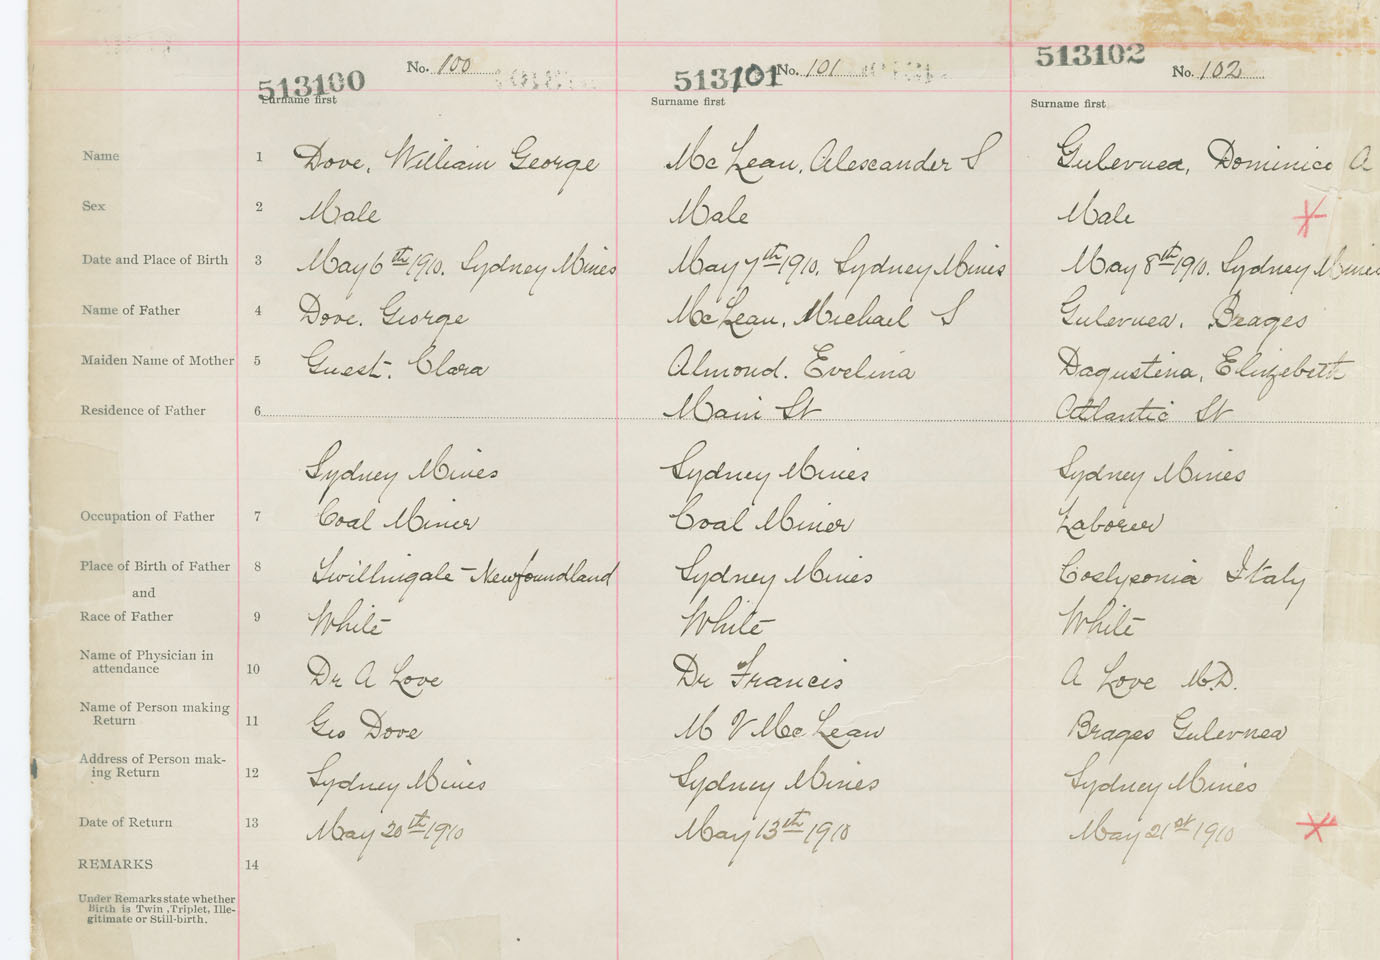 513100 No. 100 513101 No. 101 513102 No. 102
Surname first Surname first Surname first
Name 1 Dove, William George McLean, Alescander S Gulevnea, Dominico A
Sex 2 Male Male Male
Date and Place of Birth 3 May 6th 1910. Sydney Mines May 7th 1910. Sydney Mines May 8th 1910. Sydney Mines
Name of Father 4 Dove. George McLean, Michael S Gulevnea. Brages
Maiden Name of Mother 5 Guest. Clara Almond. Evelina Dagustina, Elizebeth
Residence of Father 6 Main St Atlantic St
Sydney Mines Sydney Mines Sydney Mines
Occupation of Father 7 Coal Miner Coal Miner Laborer
Place of Birth of Father 8 Twillingate - Newfoundland Sydney Mines Italy
and
Race of Father 9 White White White
Name of Physician in
attendance 10 Dr A Love Dr Francis A Love M.D.
Name of Person making
Return 11 Geo Dove M V McLean Brages Gulevnea
Address of Person mak-
ing Return 12 Sydney Mines Sydney Mines Sydney Mines
Date of Return 13 May 20th 1910 May 13th 1910 May 21st 1910
REMARKS 14
Under Remarks state whether
Birth is Twin, Triplet, Ille-
gitimate or Still-birth.